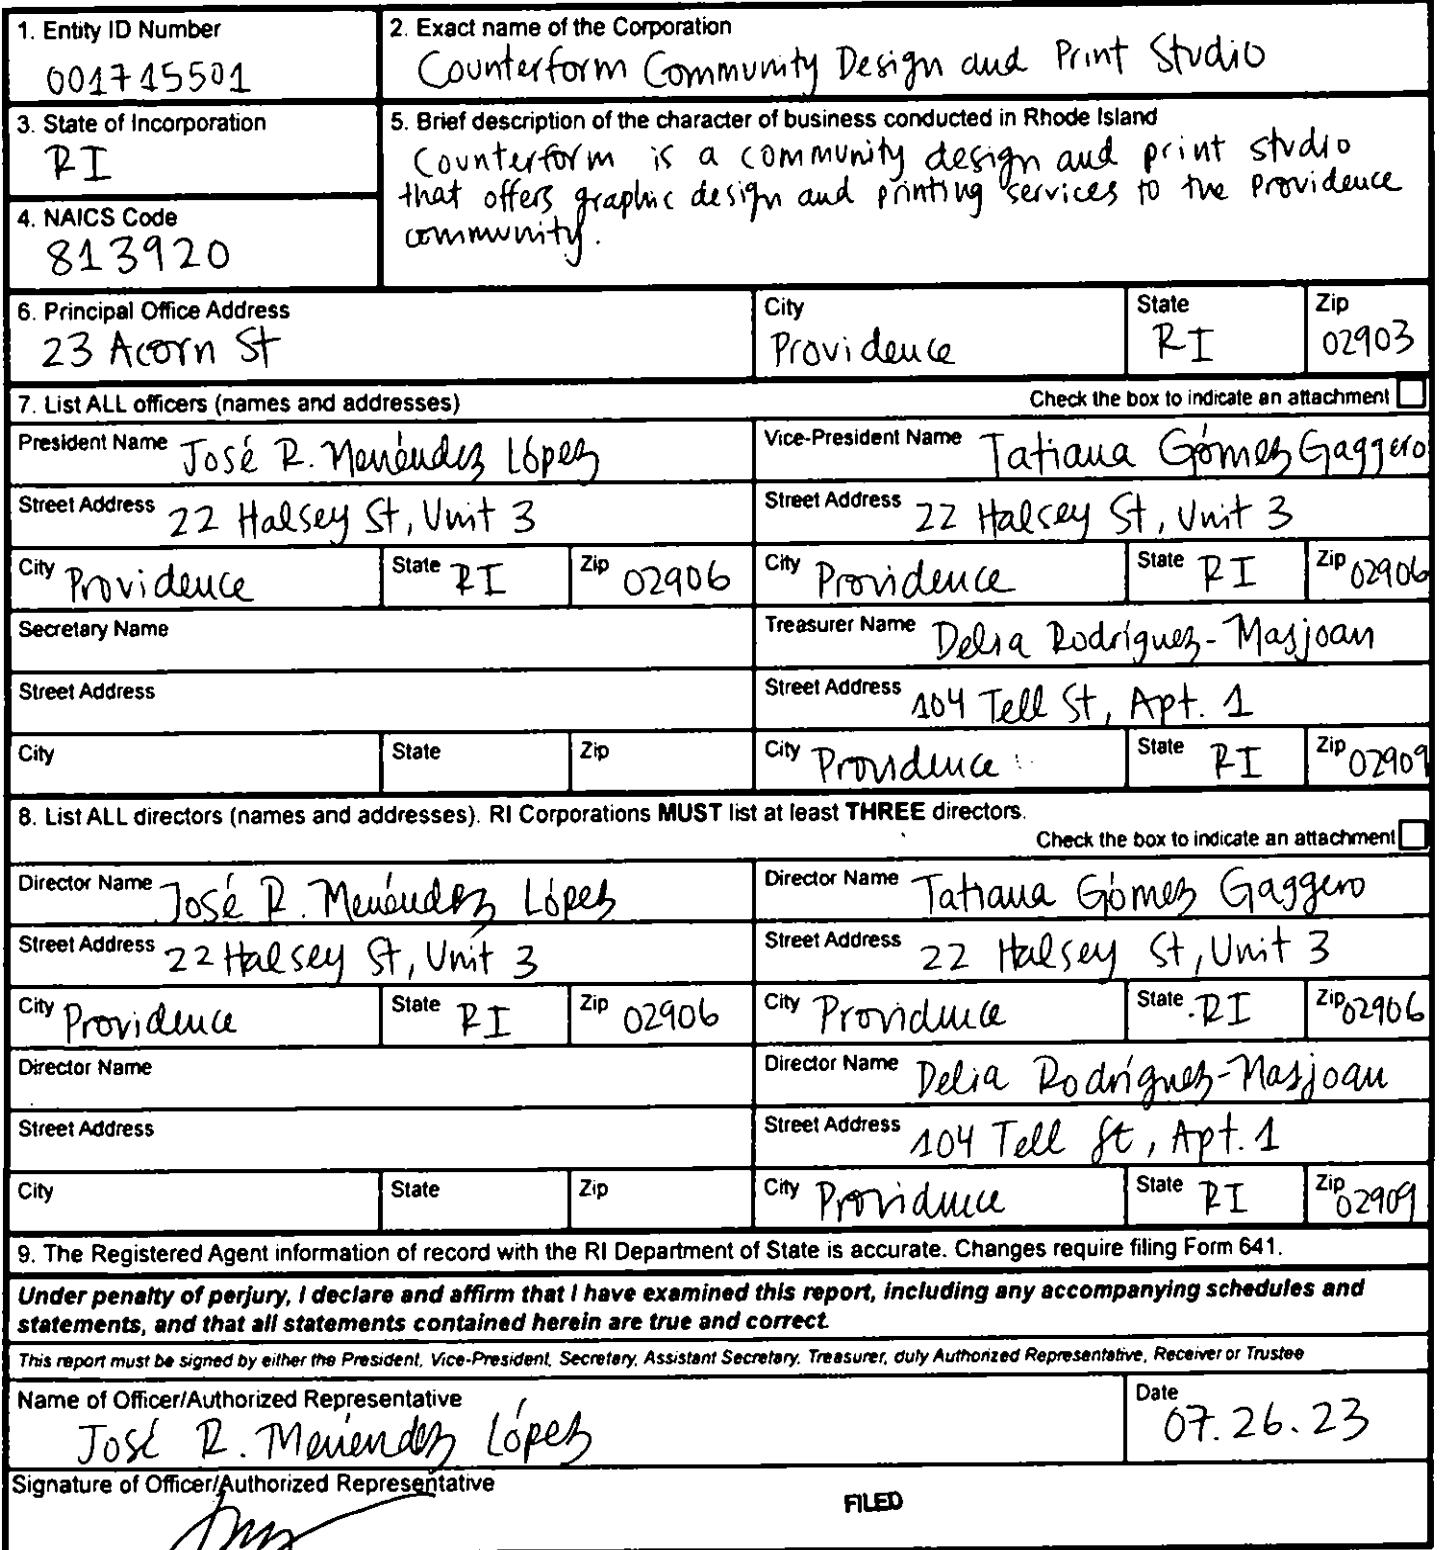 1. Entity ID Number
001715501
2. Exact name of the Corporation
Counterform Community Design and Print Studio
3. State of Incorporation
RI
5. Brief description of the character of business conducted in Rhode Island
Counterform is a community design and print studio
that offers graphic design and printing services to the Providence
community.
4. NAICS Code
813920
6. Principal Office Address
23 Acorn St
City
Providence
State
RI
Zip
02903
7. List ALL officers (names and addresses)
Check the box to indicate an attachment
President Name José R. Menéndez López
Vice-President Name Tatiana Gómez Gaggero
Street Address 22 Halsey St, Unit 3
Street Address 22 Halsey St, Unit 3
City Providence
State RI
Zip 02906
City Providence
State RI
Zip 02906
Secretary Name
Treasurer Name Delia Rodríguez-Masjoan
Street Address
Street Address 104 Tell St, Apt. 1
City
State
Zip
City Providence
State RI
Zip 02909
8. List ALL directors (names and addresses). RI Corporations MUST list at least THREE directors.
Check the box to indicate an attachment
Director Name José R. Menéndez López
Director Name Tatiana Gómez Gaggero
Street Address 22 Halsey St, Unit 3
Street Address 22 Halsey St, Unit 3
City Providence
State RI
Zip 02906
City Providence
State RI
Zip 02906
Director Name
Director Name Delia Rodríguez-Masjoan
Street Address
Street Address 104 Tell St, Apt. 1
City
State
Zip
City Providence
State RI
Zip 02909
9. The Registered Agent information of record with the RI Department of State is accurate. Changes require filing Form 641.
Under penalty of perjury, I declare and affirm that I have examined this report, including any accompanying schedules and
statements, and that all statements contained herein are true and correct.
This report must be signed by either the President, Vice-President, Secretary, Assistant Secretary, Treasurer, duly Authorized Representative, Receiver or Trustee
Name of Officer/Authorized Representative
José R. Menéndez López
Date
07.26.23
Signature of Officer/Authorized Representative
FILED